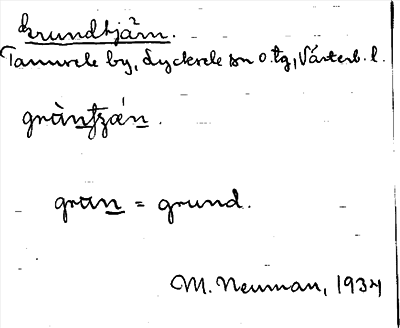 Grundtjärn.
Tannsele by, Lycksele sn o. tg, Västerb. l.
grùntʒǽn.
grun = grund.
M. Neuman, 1934